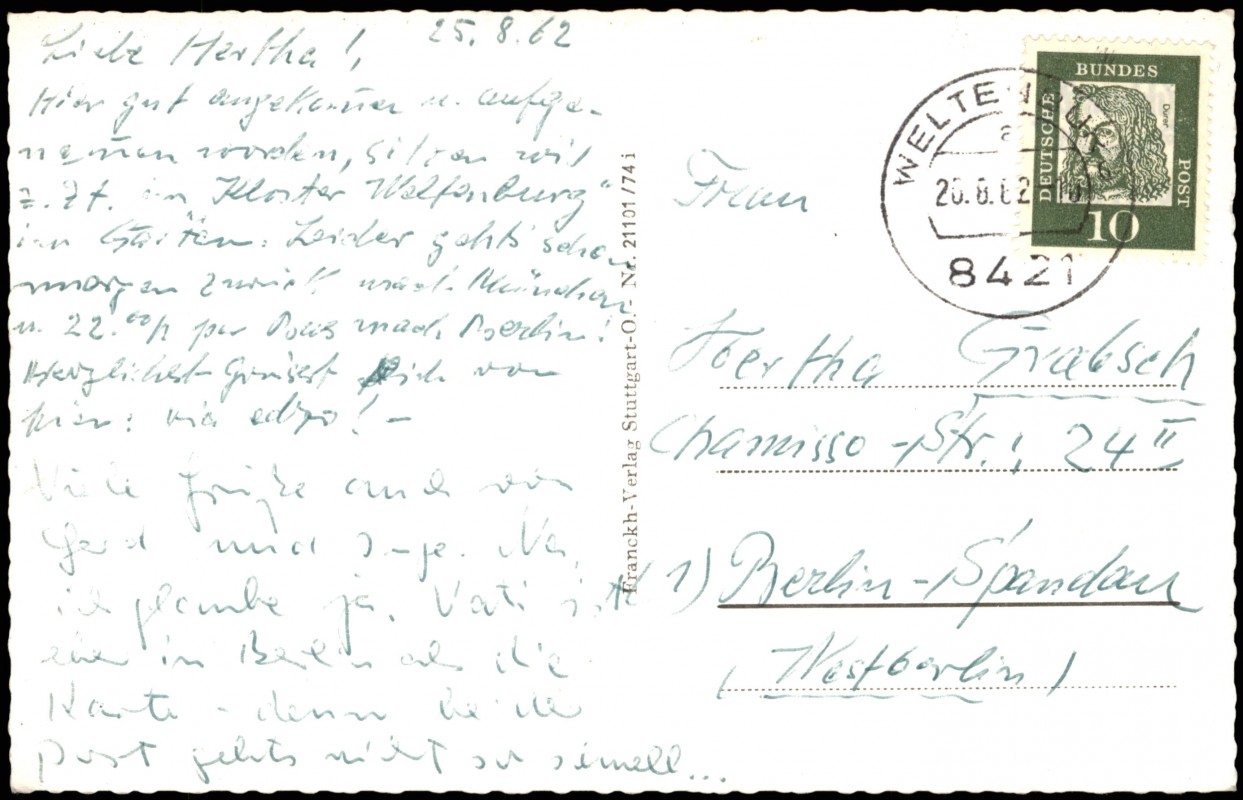 25.8.62
Liebe Hertha!
Hier gut angekom̄en u. aufge-
nom̄en worden, sitzen wir
z. Zt. im Kloster "Weltenburg"
im Garten. Leider gehts schon
morgen zurück nach München
u. 22.00h per Bus nach Berlin!
Herzlichst Grüsst Dich von
hier:
Viele Grüße auch von
Gerd und Inge. Na,
ich glaube ja, Vati ist
eher in Berlin als die
Karte - denn bei der
Post gehts nicht so schnell...
Franckh-Verlag Stuttgart-O. - Nr. 21101/74 i
WELTENBURG
a
26.8.62-10
8421
DEUTSCHE BUNDES POST
Dürer
10
Frau
Hertha Grabsch
Chamisso-Str. 24 II
1) Berlin-Spandau
(Westberlin)